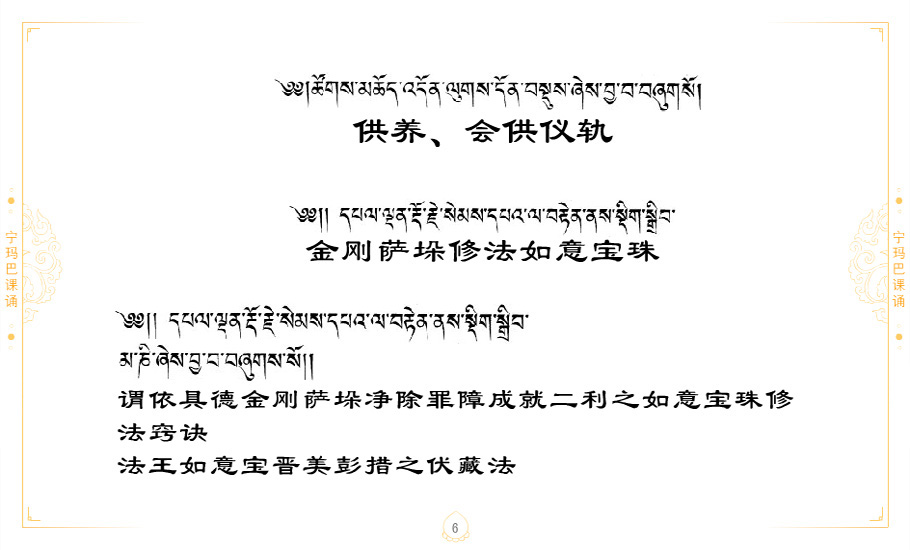 ༄༅།ཚོགས་མཆོད་འདོན་ལུགས་དོན་བསྡུས་ཞེས་བྱ་བ་བཞུགསོ།
供养、会供仪轨
༄༅།། དཔལ་ལྡན་རྡོ་རྗེ་སེམས་དཔའ་ལ་བརྟེན་ནས་སྡིག་སྒྲིབ་
金刚萨埵修法如意宝珠
༄༅།། དཔལ་ལྡན་རྡོ་རྗེ་སེམས་དཔའ་ལ་བརྟེན་ནས་སྡིག་སྒྲིབ་
མ་ཎི་ཞེས་བྱ་བ་བཞུགས་སོ།།
谓依具德金刚萨埵净除罪障成就二利之如意宝珠修
法窍诀
法王如意宝晋美彭措之伏藏法
宁玛巴课诵
宁玛巴课诵
6